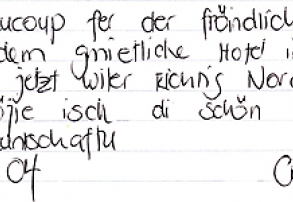 ucoup fer der fröndlich
dem gmietliche Hotel i
jetzt witer Richtig Nord
isch di schön
unschaftu
04